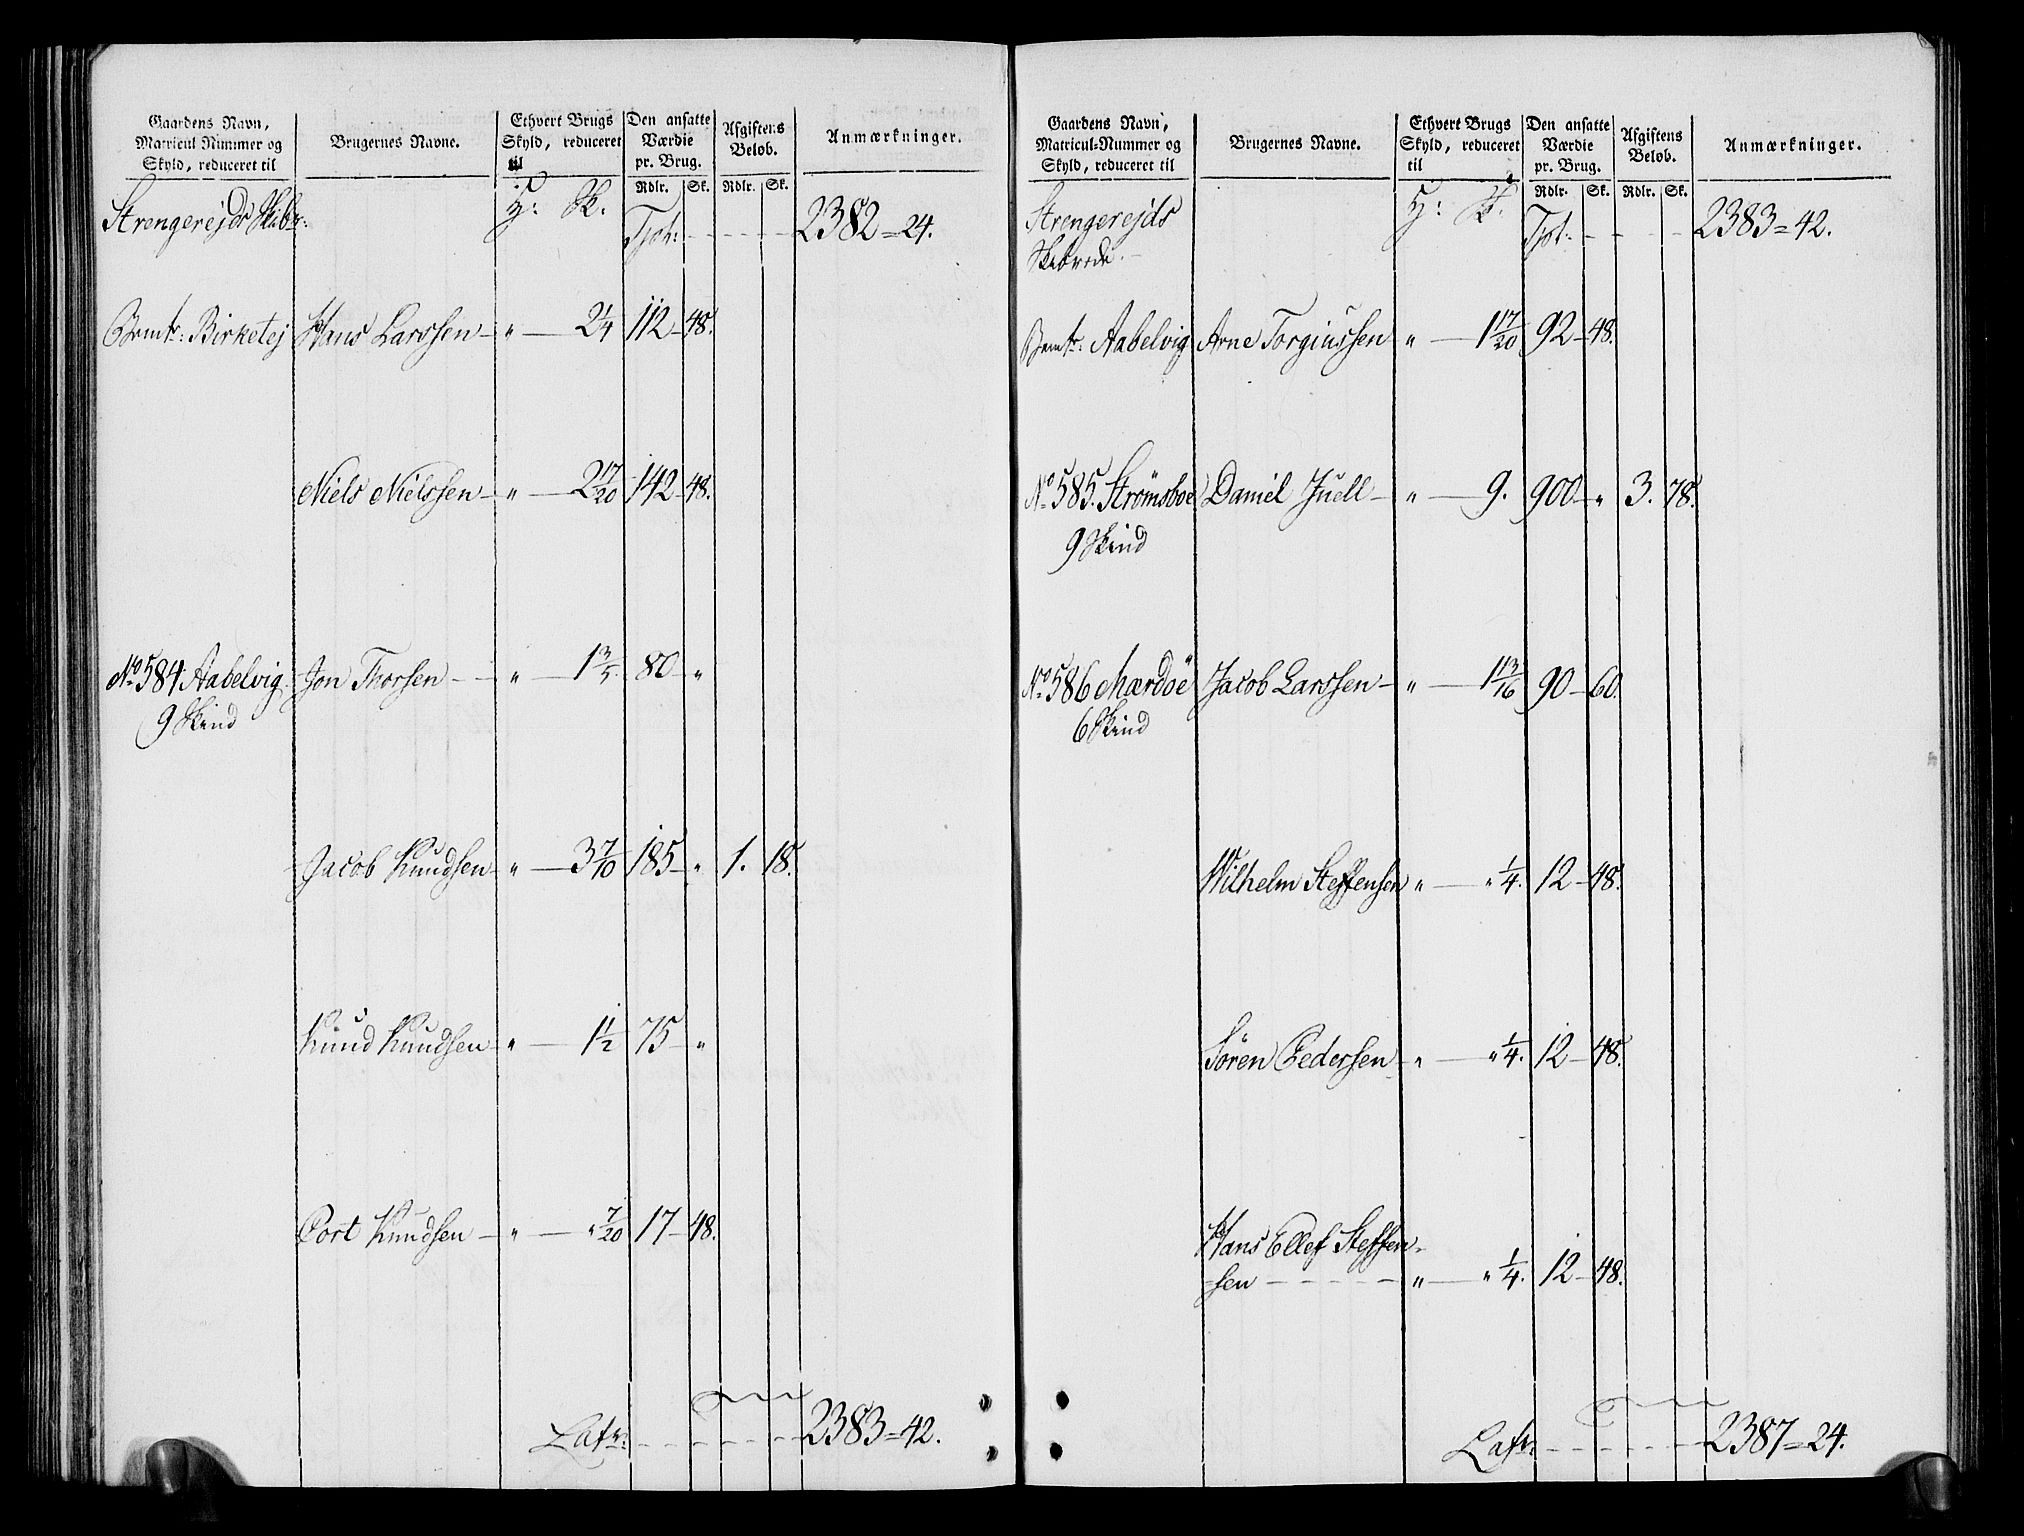 Gaardens Navn,
Matricul Nummer og
Skyld, reduceret til
Brugernes Navne.
Ethvert Brugs
Skyld, reduceret
til
Den ansatte
Værdie
pr. Brug.
Afgiftens
Beløb.
Anmærkninger.
Rdlr. Sk. Rdlr. Sk.
Strengerejds Skibr: H: Sk. Tpt: 2382 = 24.
Birketej Hans Larssen " 2 1/4 112 48.
Niels Nielssen " 2 17/20 142 48.
No 584 Aabelvig Jon Thorsen " 1 3/5 80 "
9 Skind
Jacob Knudsen " 3 7/10 185 " 1. 18.
Knud Knudsen " 1 1/2 75 "
Cort Knudsen " " 7/20 17 48.
Latr: 2383 = 42.
Gaardens Navn,
Matricul-Nummer og
Skyld, reduceret til
Brugernes Navne.
Ethvert Brugs
Skyld, reduceret
til
Den ansatte
Værdie
pr. Brug.
Afgiftens
Beløb.
Anmærkninger.
Rdlr. Sk. Rdlr. Sk.
Strengerejds H: Sk. Tpt: 2383 = 42.
Skibrede
Aabelvig Arne Torgiussen " 1 17/20 92 48.
No 585. Strømsboe Daniel Juell " 9. 900 " 3. 78.
9 Skind
No 586 Mærdöe Jacob Larssen " 1 13/16 90 60.
6 Skind
Wilhelm Steffensen " " 1/4. 12 48.
Sören Pedersen " " 1/4. 12 48.
Hans Ellef Steffen-
sen " " 1/4. 12 48.
Latr: 2387 = 24.